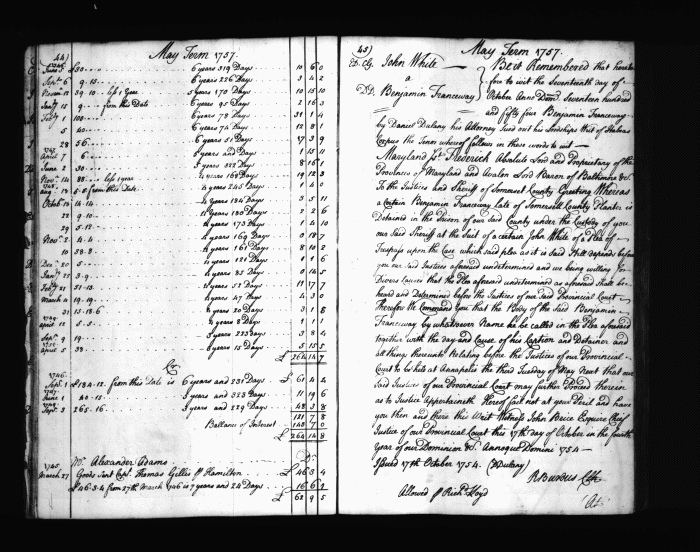 44)
May Term 1757.
June 5 £30 6 years 319 Days 10 6 0
Sept. 6 9.15 6 years 226 Days 3 4 2
Novem. 12 39.10 less 1 Year 5 years 170 Days 10 15 10
Jan. 15 9 from this Date 6 years 95 Days 2 16 3
Feb. 1 100 6 years 78 Days 31 1 4
5 40 6 years 74 Days 12 8 1
28 56 6 years 51 Days 17 3 9
1747 April 7 6 6 years and Days 1 15 11
June 2 30 5 years 322 Days 8 16 1
Nov. 14 88 less 1 year 4 years 168 Days 19 12 3
Aug. 13 5.0 from this Date 4 years 245 Days 1 4 0
Octob. 13 14.14 4 years 184 Days 3 5 11
22 9.10 4 years 180 Days 2 2 6
29 5.12 4 years 173 Days 1 4 10
Nov. 2 4.4 4 years 169 Days 0 18 7
10 38.8 4 years 161 Days 8 10 2
Dec. 20 5 4 years 121 Days 1 1 6
Jan. 25 3.9 4 years 85 Days 0 14 5
Feb. 21 51.13 4 years 52 Days 11 17 7
March 4 19.19 4 years 47 Days 4 3 0
31 15.18.6 4 years 20 Days 3 1 5
April 12 5.5 4 years 8 Days 1 1
Sept. 9 19 3 years 223 Days 3 8 4
April 5 38 3 years 15 Days 5 15 5
£ 264 14 7
Cr
1746 Sept. 1 £184.12 from this Date is 6 years and 231 Days £ 61 4 2
June 1 40.15 5 years and 323 Days 11 19 6
Sept. 3 265.16 3 years and 229 Days 48 3 8
121 7 8
Ballance of Interest 143 7 0
£ 264 14 8
1745 Mr. Alexander Adams Dr.
March 27 Goods Sent Capt. Thomas Gillis & Hamilton £ 46 3 4
£46.3.4 from 27th March 1746 is 7 years and 24 Days 16 6 1
£ 62 9 5
45)
May Term 1757.
John White
a
Benjamin Franceway
Be it Remembered that hereto
fore to wit the Seventeenth day of
October Anno Dom. Seventeen hundred
and fifty four Benjamin Franceway
by Daniel Dulany his Attorney Sued out his Lordships Writ of Habeas
Corpus the Tenor whereof follows in these words to wit
Maryland Sst. Frederick Absolute Lord and Proprietary of the
Provinces of Maryland and Avalon Lord Baron of Baltimore &c.
To the Justices and Sheriff of Somerset County Greeting Whereas
a Certain Benjamin Franceway Late of Somerset County Planter is
Detained in the Prison of our Said County under the Custody of you
our Said Sheriff at the Suit of a certain John White of a Plea of
Trespass upon the Case which said plea as it is Said Still Depends before
you our Said Justices aforesaid undetermined and we being willing for
Divers Causes that the Plea aforesaid undetermined as aforesaid shall be
heard and Determined before the Justices of our Said Provincial Court
Therefore We Command You that the Body of the Said Benjamin
Franceway by whatsoever Name he be called in the Plea aforesaid
together with the day and Cause of his Caption and Detainer and
all things thereunto Relating before the Justices of our Provincial
Court to be held at Annapolis the third Tuesday of May Next that our
Said Justices of our Provincial Court may further Proceed therein
as to Justice Appertaineth Hereof fail not at your Peril and have
you then and there this Writ Witness John Brice Esquire Chief
Justice of our Provincial Court this 17th day of October in the fourth
Year of our Dominion &c. Annoque Domini 1754
Issued 17th October 1754. (D Dulany)
R Burdus Clk
Allowed p Richd. Lloyd